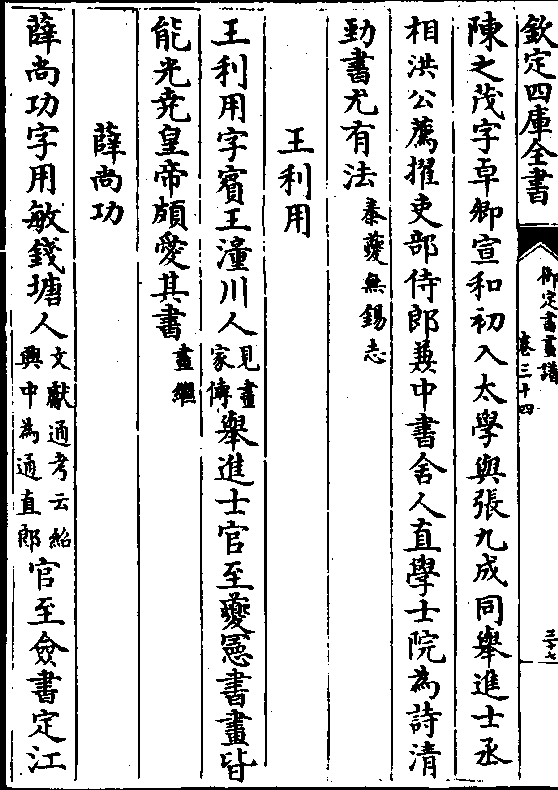 欽定四庫全書
御定書畫譜
卷三十四
三十七
陳之茂字卓卿宣和初入太學與張九成同舉進士丞
相洪公薦擢吏部侍郎兼中書舍人直學士院為詩清
勁書尤有法秦夔無錫志
王利用
王利用字賓王潼川人見畫家傳舉進士官至夔憲書畫皆
能光堯皇帝頗愛其書畫繼
薛尚功
薛尚功字用敏錢塘人文獻通考云紹興中為通直郎官至僉書定江